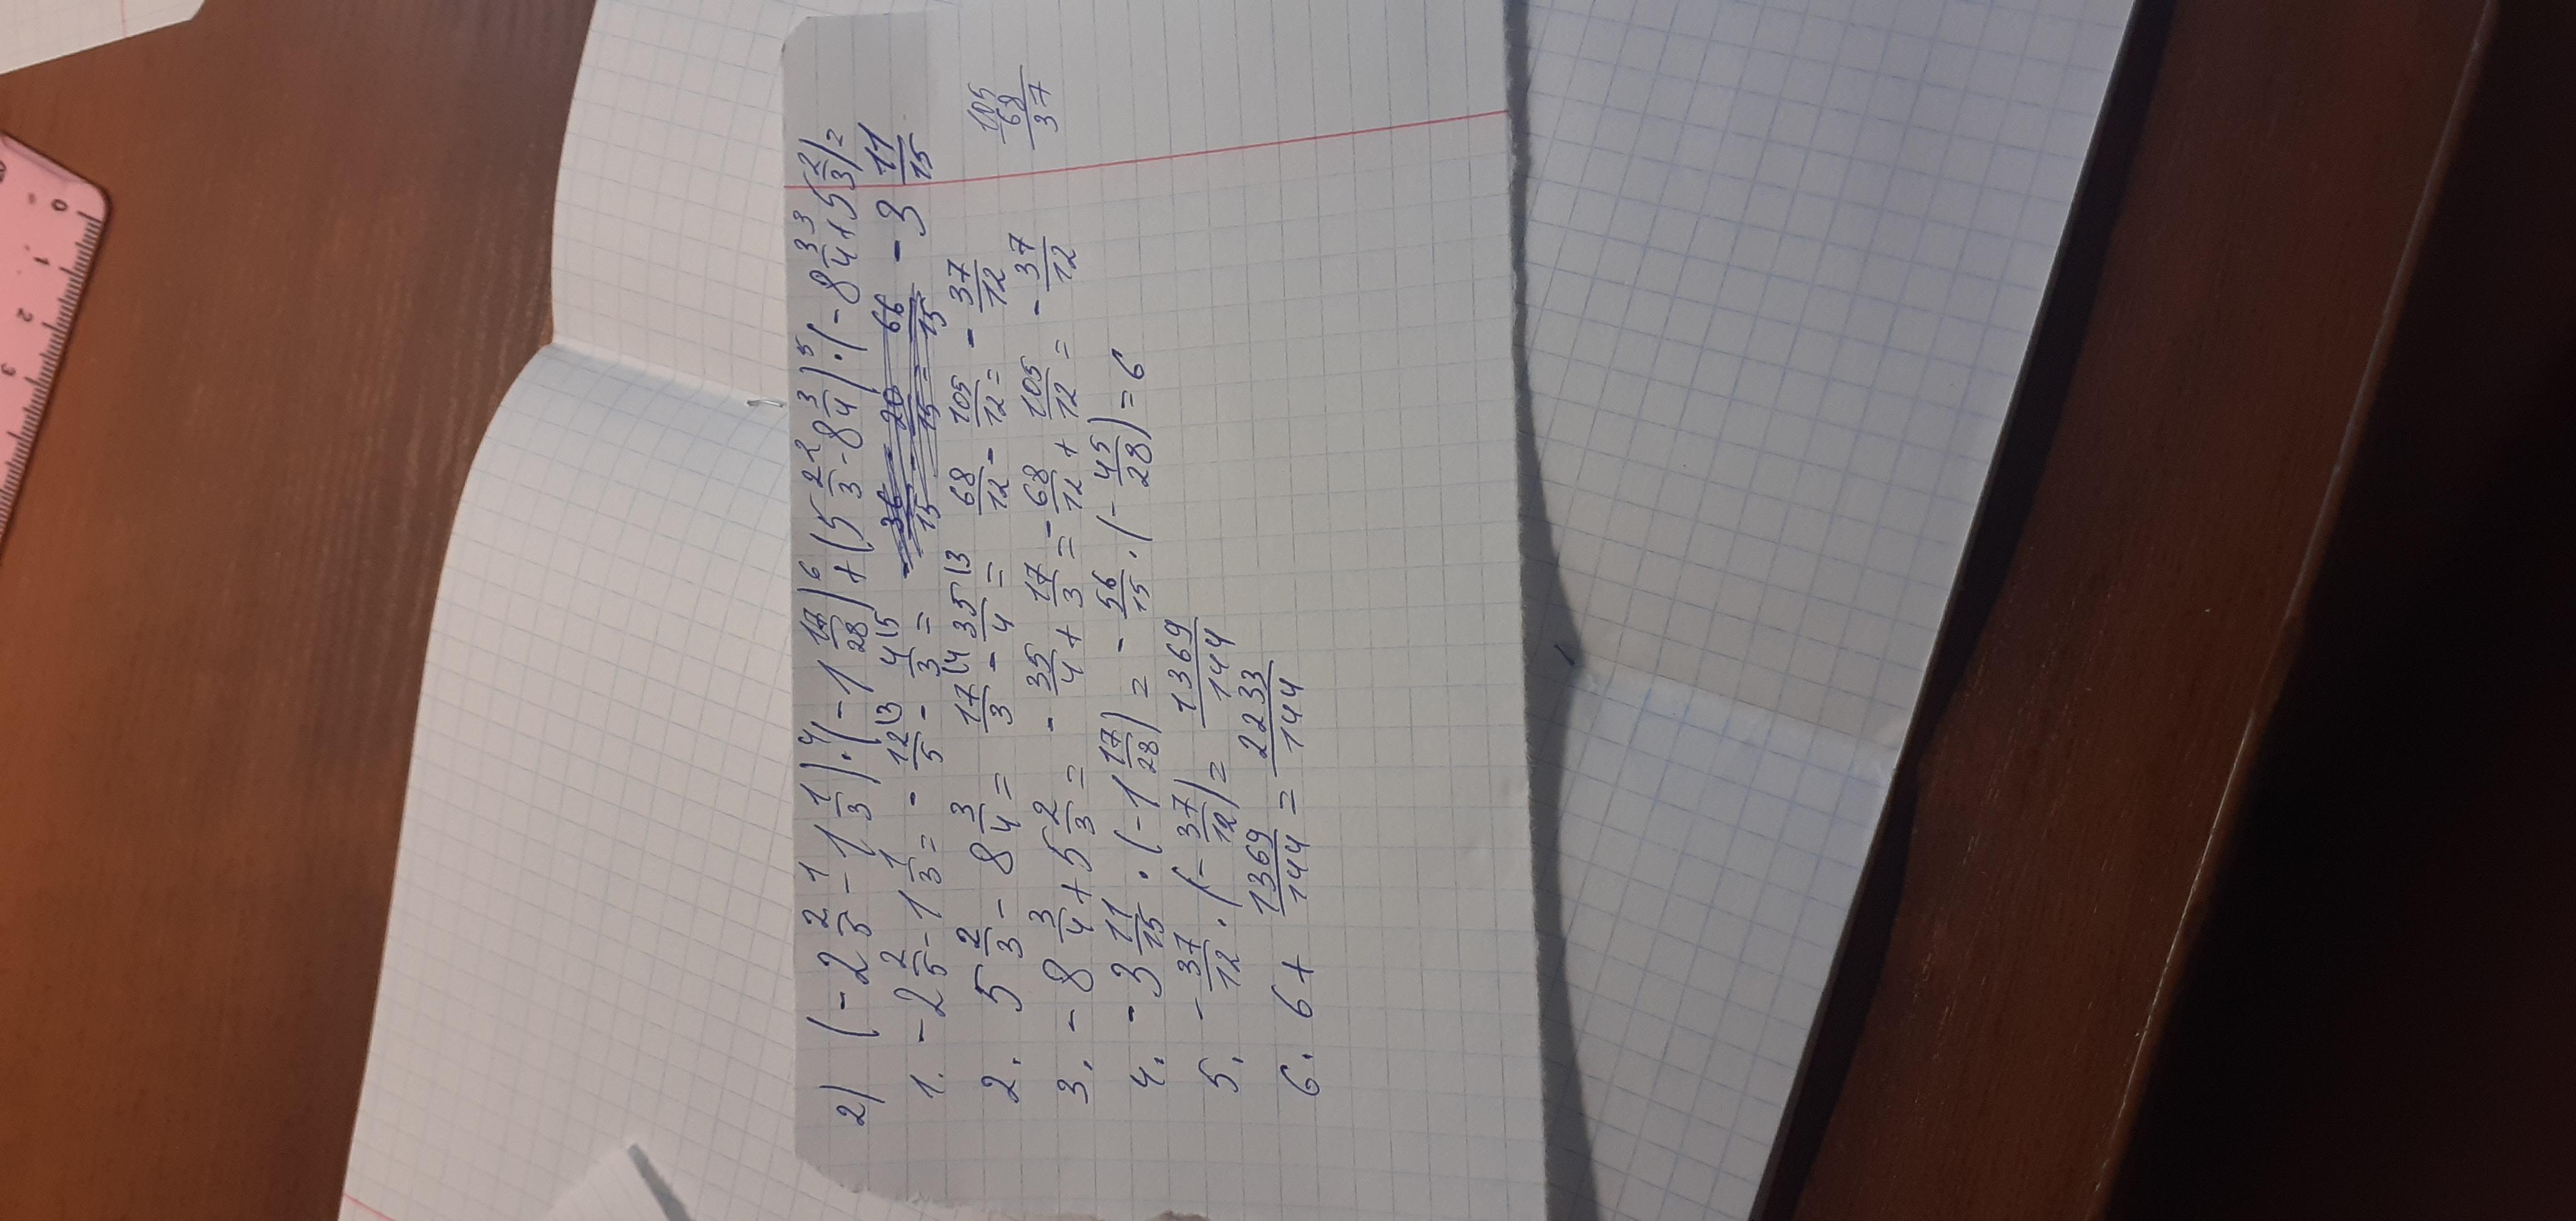 2) (-2 2/5 - 1 1/3) · (-1 17/28) + (5 2/3 - 8 3/4) · (-8 3/4 + 5 2/3) =
1. -2 2/5 - 1 1/3 = - 12/5 \3 - 4/3 \5 = - 3 11/15
2. 5 2/3 - 8 3/4 = 17/3 \4 - 35/4 \3 = 68/12 - 105/12 = - 37/12
3. - 8 3/4 + 5 2/3 = - 35/4 + 17/3 = - 68/12 + 105/12 = - 37/12
4. - 3 11/15 · (-1 17/28) = - 56/15 · (- 45/28) = 6
5. - 37/12 · (- 37/12) = 1369/144
6. 6 + 1369/144 = 2233/144
105
68
37
0 1 2 3